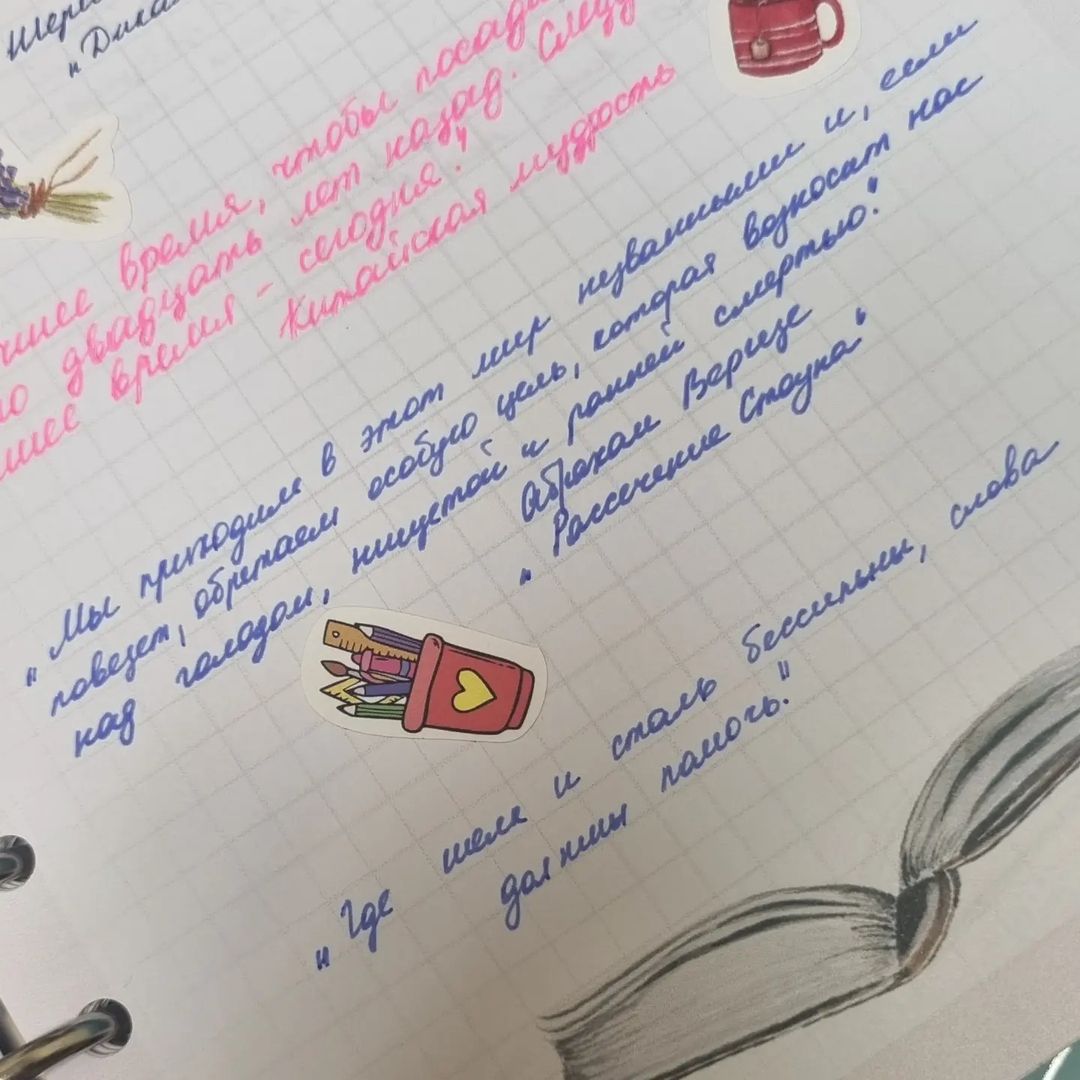 "Дика
время, чтобы посад
двадцать лет назад. Следу
время - сегодня."
Китайская мудрость
"Мы приходим в этот мир незванными и, если
повезет, обретаем особую цель, которая возносит нас
над голодом, нищетой и ранней смертью."
Абрахам Вергезе
"Рассечение Стоуна"
"Где шелк и сталь бессильны, слова
должны помочь."